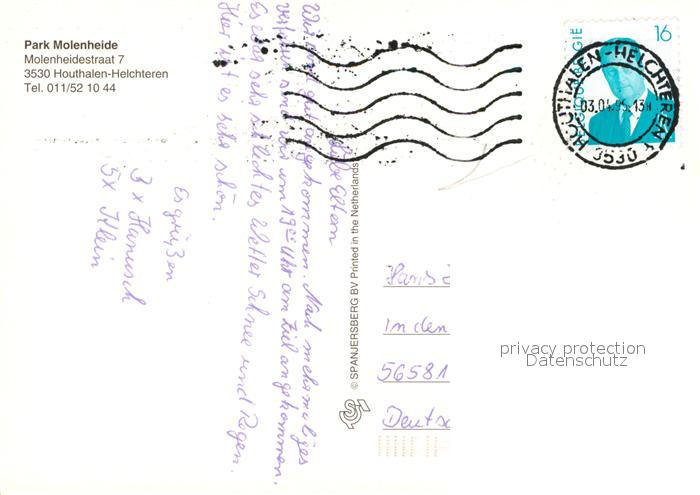 Park Molenheide
Molenheidestraat 7
3530 Houthalen-Helchteren
Tel. 011/52 10 44
Liebe Eltern
Wir sind gut angekommen. Nach mehrmaliges
sind wir um 19 Uhr am Ziel angekommen.
Es war sehr schlechtes Wetter Schnee und Regen.
Hier ist es sehr schön.
Es grüßen
3 x Hanusch
5x Klein
© SPANJERSBERG BV Printed in the Netherlands
BELGIË
16
HOUTHALEN-HELCHTEREN
03.04.95.13H
3530
In den
56581
Deutsc
privacy protection
Datenschutz